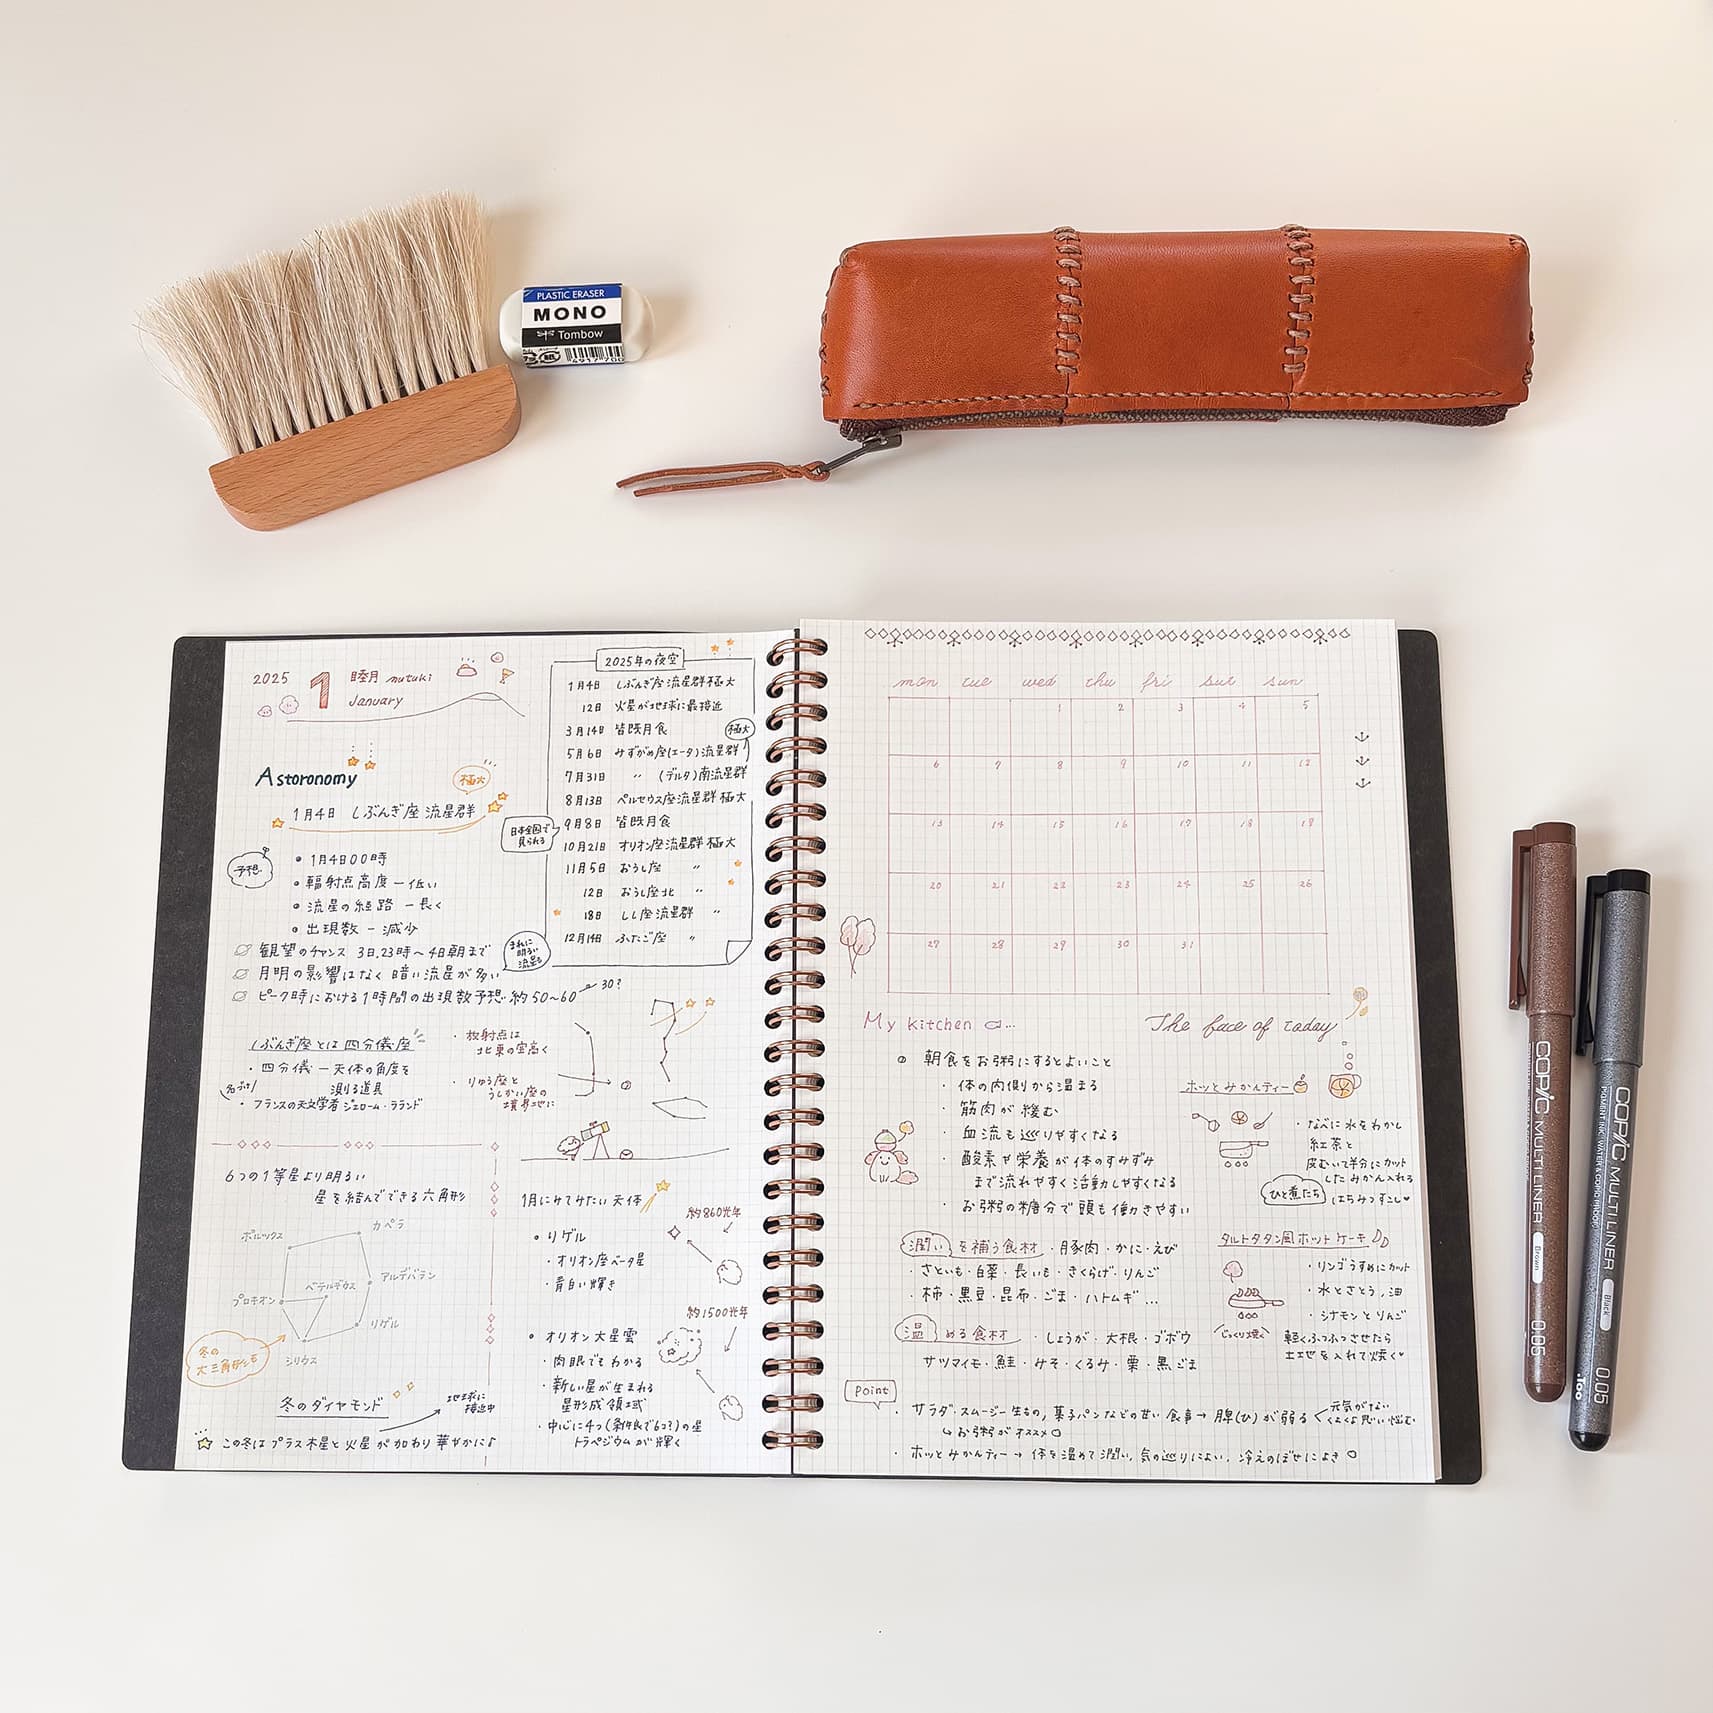 PLASTIC ERASER
MONO
Tombow
4901770
2025
1
睦月 mutuki
January
Astoronomy
極大
1月4日 しぶんぎ座流星群
予想
• 1月4日00時
• 輻射点高度 – 低い
• 流星の経路 – 長く
• 出現数 – 減少
観望のチャンス 3日,23時〜4日朝まで
月明の影響はなく 暗い流星が多い
ピーク時における1時間の出現数予想 約50〜60
30?
2025年の夜空
1月4日 しぶんぎ座流星群極大
12日 火星が地球に最接近
3月14日 皆既月食
極大
5月6日 みずがめ座(エータ)流星群
7月31日 〃 (デルタ)南流星群
8月13日 ペルセウス座流星群極大
9月8日 皆既月食
日本全国で
見られる
10月21日 オリオン座流星群極大
11月5日 おうし座 〃
12日 おうし座北 〃
18日 しし座流星群 〃
12月14日 ふたご座 〃
まれに
明るい
流星も
しぶんぎ座とは四分儀座
・四分儀 – 天体の角度を
測る道具
・フランスの天文学者 ジェローム・ラランド
・放射点は
北東の空高く
・りゅう座と
うしかい座の
境界地に
6つの1等星より明るい
星を結んでできる六角形
カペラ
ポルックス
アルデバラン
ベテルギウス
プロキオン
リゲル
シリウス
冬の
大三角形
冬のダイヤモンド
地球に
接近中
この冬はプラス木星と火星が加わり華やかに♪
1月にみてみたい天体
約860光年
• リゲル
・オリオン座ベータ星
・青白い輝き
約1500光年
• オリオン大星雲
・肉眼でもわかる
・新しい星が生まれる
星形成領域
・中心に4つ(条件良で6つ?)の星
トラペジウムが輝く
mon tue wed thu fri sut sun
1 2 3 4 5
6 7 8 9 10 11 12
13 14 15 16 17 18 19
20 21 22 23 24 25 26
27 28 29 30 31
My kitchen
The face of today
朝食をお粥にするとよいこと
・体の内側から温まる
・筋肉が緩む
・血流も巡りやすくなる
・酸素や栄養が体のすみずみ
まで流れやすく活動しやすくなる
・お粥の糖分で頭も働きやすい
潤いを補う食材・豚肉・かに・えび
・さといも・白菜・長いも・きくらげ・りんご
・柿・黒豆・昆布・ごま・ハトムギ…
温める食材 ・しょうが・大根・ゴボウ
サツマイモ・鮭・みそ・くるみ・栗・黒ごま
ホッとみかんティー
・なべに水をわかし
紅茶と
皮むいて半分にカット
したみかん入れる
はちみつすこし♥
ひと煮たち
タルトタタン風ホットケーキ
・リンゴうすめにカット
・水とさとう,油
・シナモンとりんご
じっくり焼く
軽くふつふつさせたら
生地を入れて焼く♥
Point
・サラダ・スムージー生もの,菓子パンなどの甘い食事→脾(ひ)が弱る
元気がない
くよくよ思い悩む
↳お粥がオススメ○
・ホッとみかんティー→体を温めて潤い,気の巡りによい,冷えのぼせによき○
COPIC MULTI LINER
PIGMENT INK, WATER & COPIC PROOF
Brown
0.05
COPIC MULTI LINER
PIGMENT INK, WATER & COPIC PROOF
Black
0.05
.Too